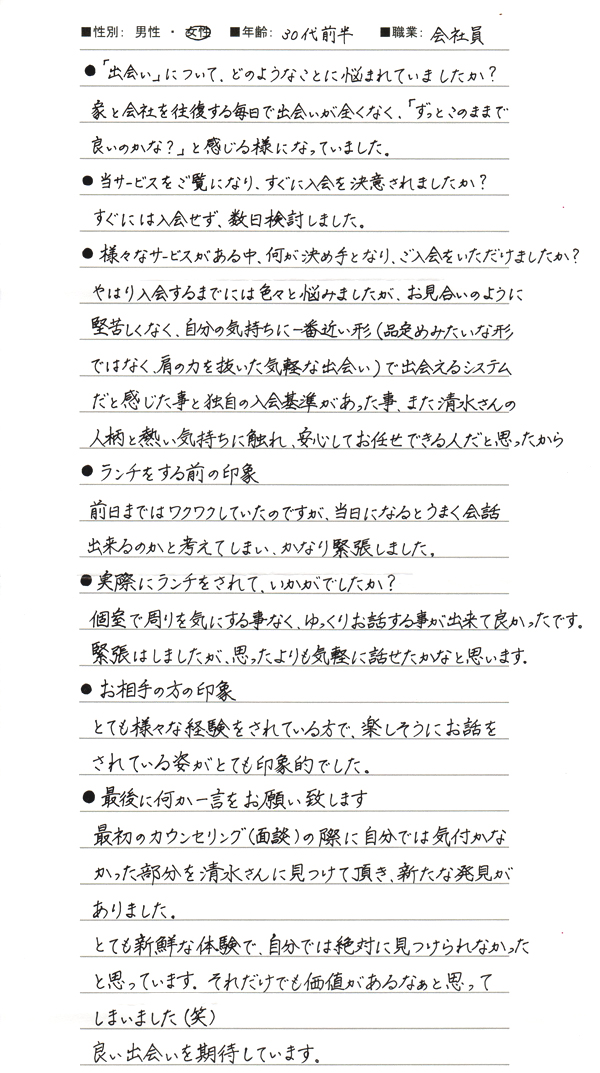 ■性別: 男性 ・ 女性 ■年齢: 30代前半 ■職業: 会社員
●「出会い」について、どのようなことに悩まれていましたか？
家と会社を往復する毎日で出会いが全くなく、「ずっとこのままで
良いのかな？」と感じる様になっていました。
●当サービスをご覧になり、すぐに入会を決意されましたか？
すぐには入会せず、数日検討しました。
●様々なサービスがある中、何が決め手となり、ご入会をいただけましたか？
やはり入会するまでには色々と悩みましたが、お見合いのように
堅苦しくなく、自分の気持ちに一番近い形(品定めみたいな形
ではなく、肩の力を抜いた気軽な出会い)で出会えるシステム
だと感じた事と独自の入会基準があった事、また清水さんの
人柄と熱い気持ちに触れ、安心してお任せできる人だと思ったから
●ランチをする前の印象
前日まではワクワクしていたのですが、当日になるとうまく会話
出来るのかと考えてしまい、かなり緊張しました。
●実際にランチをされて、いかがでしたか？
個室で周りを気にする事なく、ゆっくりお話する事が出来て良かったです。
緊張はしましたが、思ったよりも気軽に話せたかなと思います。
●お相手の方の印象
とても様々な経験をされている方で、楽しそうにお話を
されている姿がとても印象的でした。
●最後に何か一言をお願い致します
最初のカウンセリング(面談)の際に自分では気付かな
かった部分を清水さんに見つけて頂き、新たな発見が
ありました。
とても新鮮な体験で、自分では絶対に見つけられなかった
と思っています。それだけでも価値があるなぁと思って
しまいました(笑)
良い出会いを期待しています。